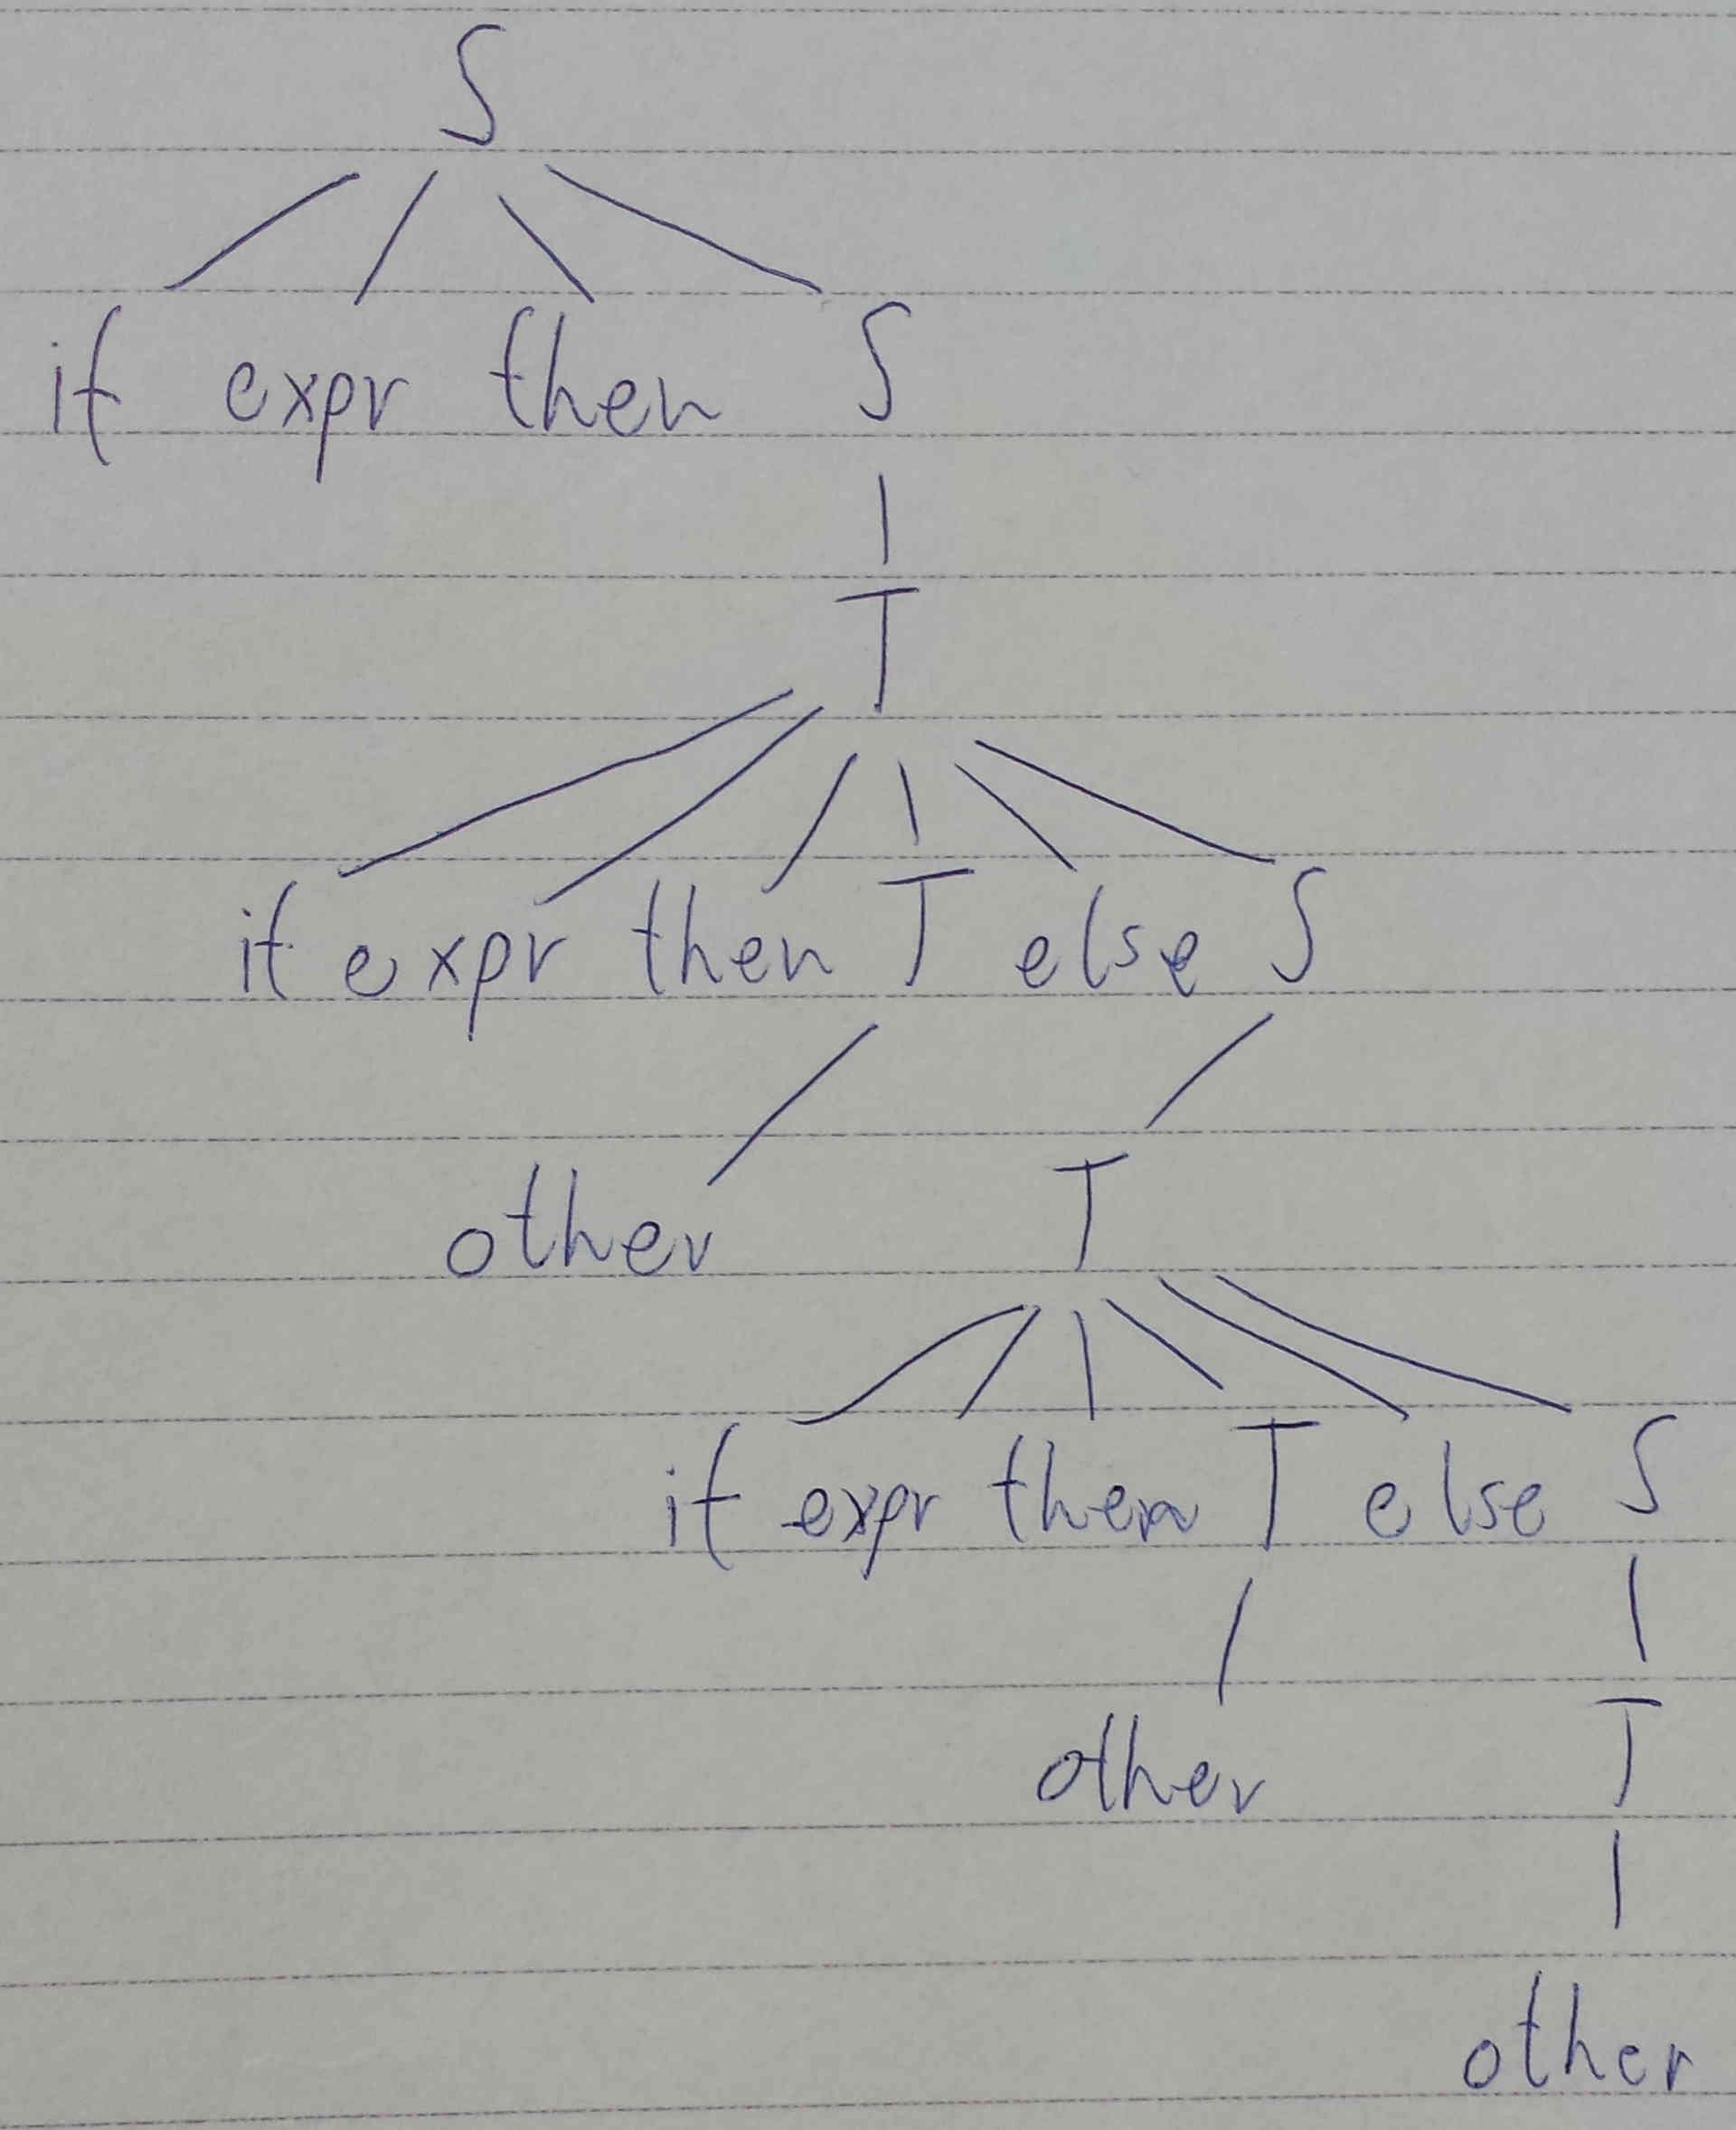 S
if expr then S
T
if expr then T else S
other T
if expr then T else S
other T
other